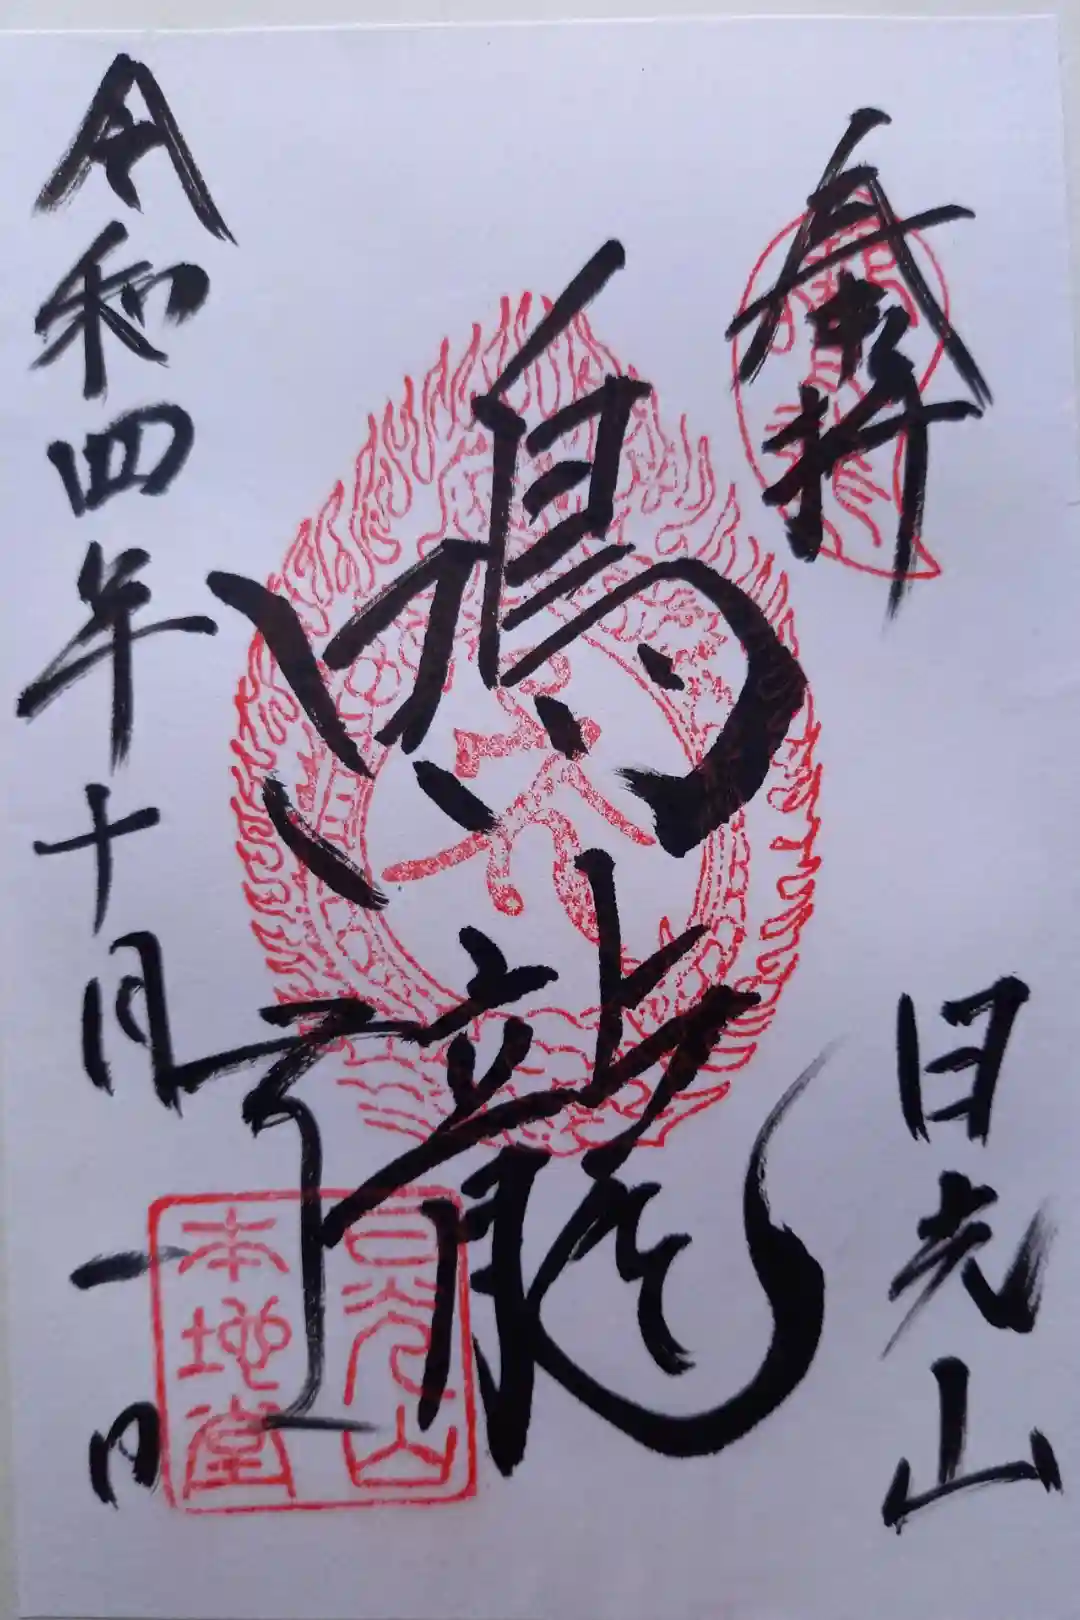 奉拝
日光山
鳴龍
令和四年十月一日
日光山
本地堂